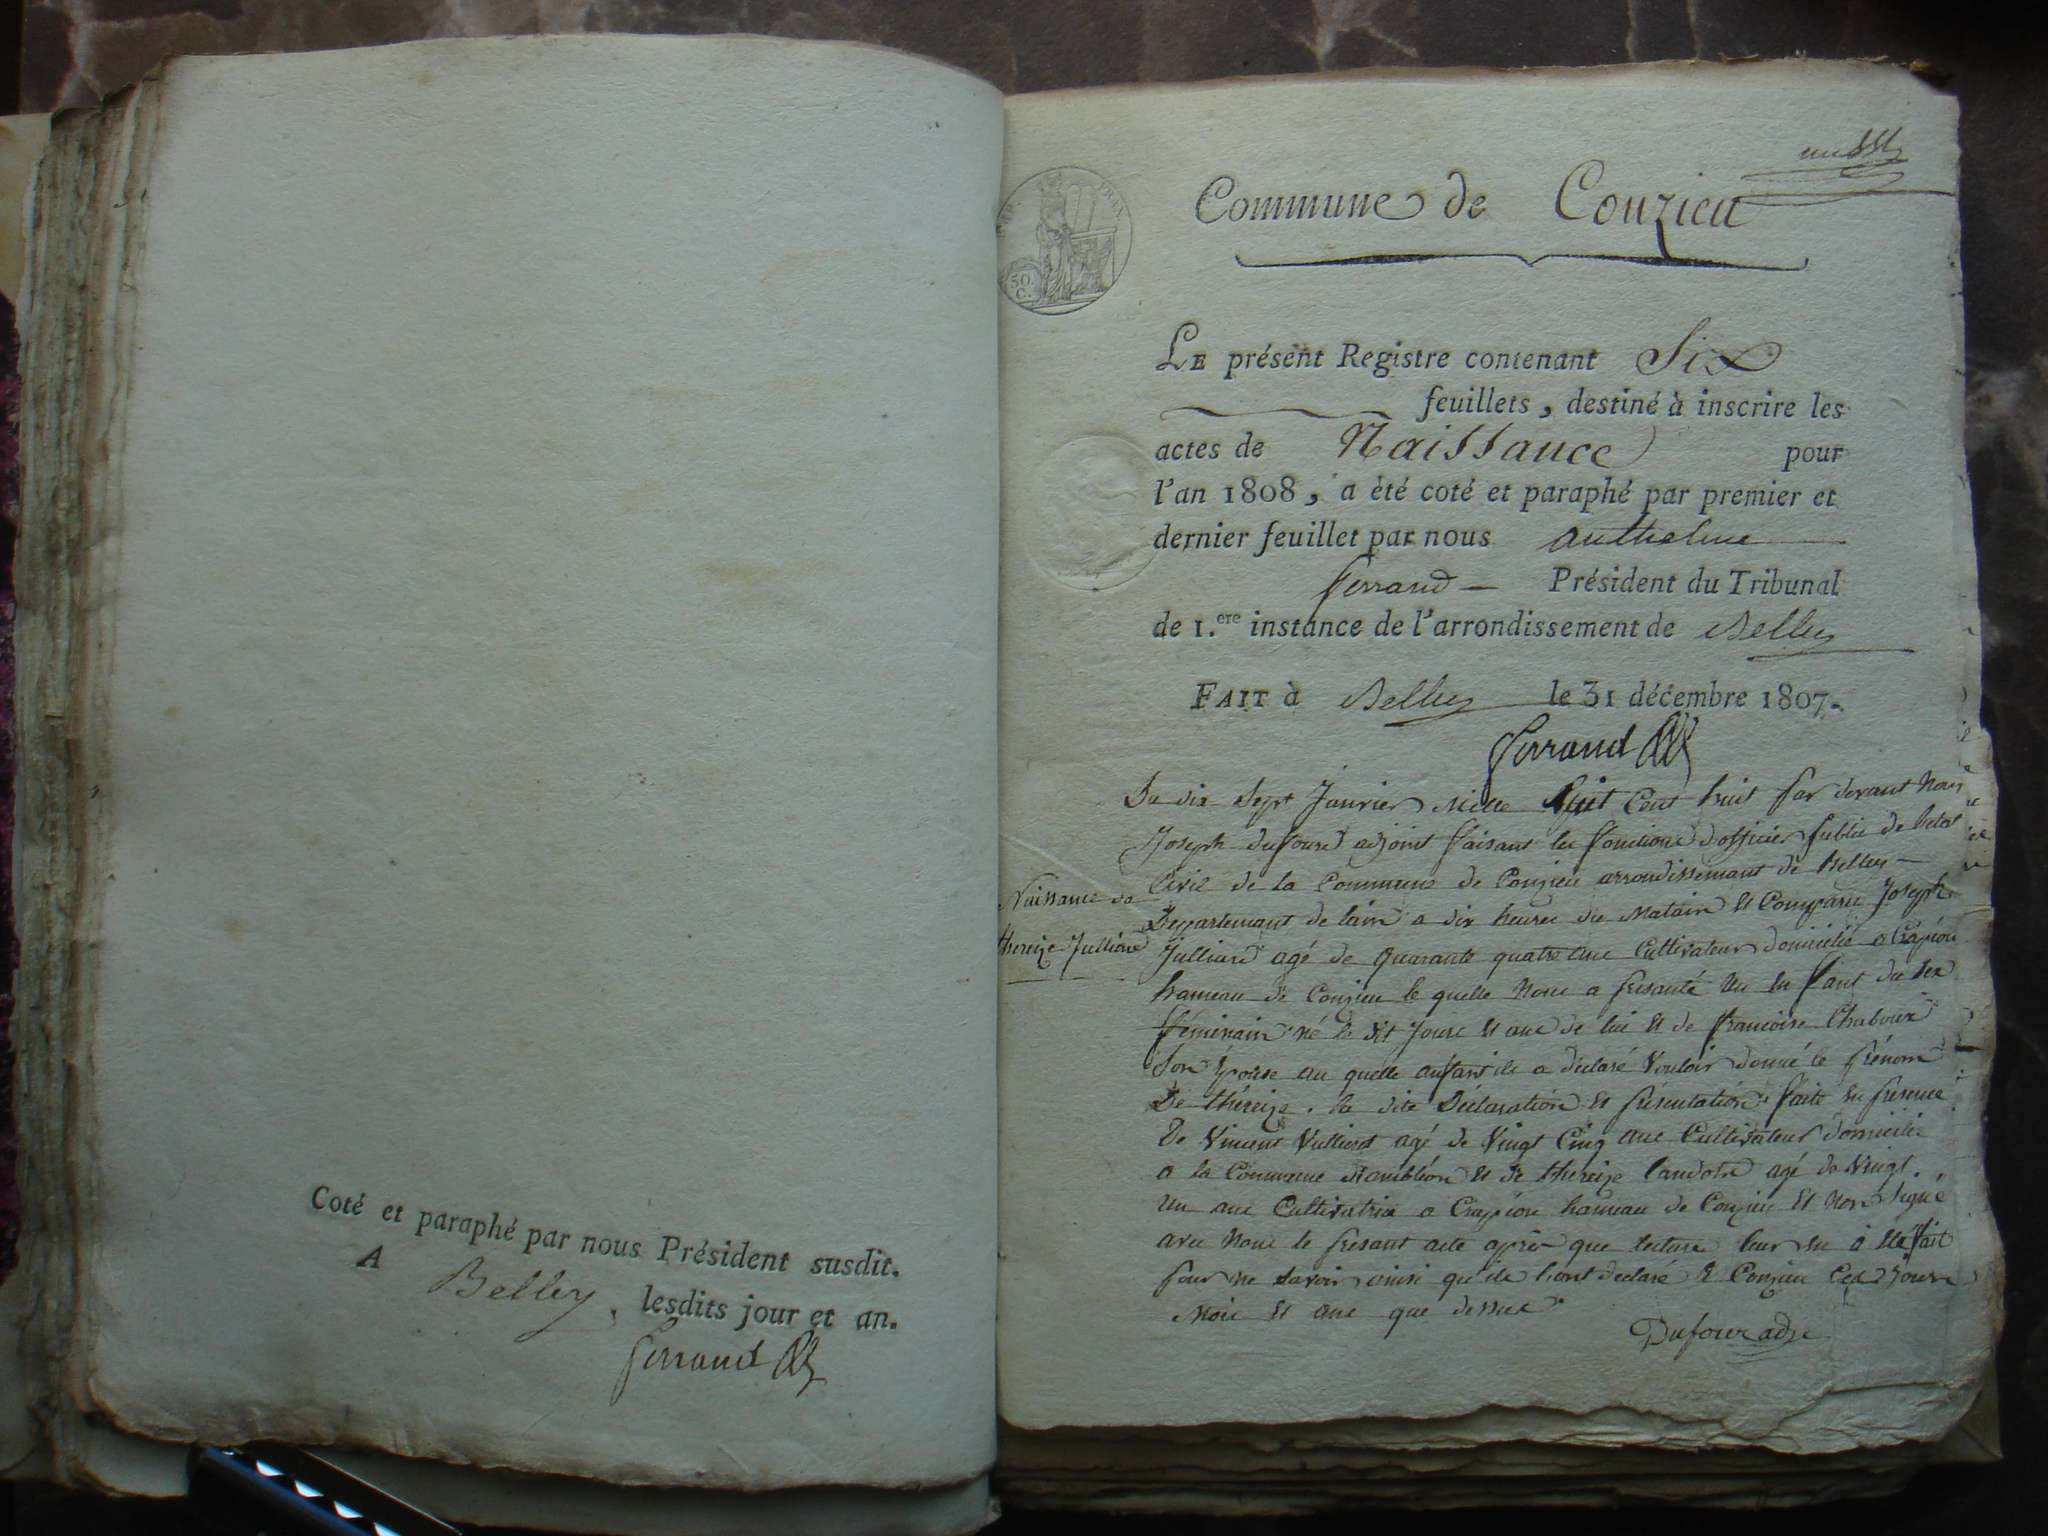 Coté et paraphé par nous Président susdit.
A Belley, lesdits jour et an.
Ferrand
Commune de Conzieu
50 C.
LE présent Registre contenant Six
feuillets, destiné à inscrire les
actes de Naissance pour
l'an 1808, a été coté et paraphé par premier et
dernier feuillet par nous anthelme
ferrand Président du Tribunal
de 1.ere instance de l'arrondissement de Belley
FAIT à Belley le 31 décembre 1807.
Ferrand
Du dix Sept Janvier Mille huit Cent huit par devant Nous
Joseph dufour adjoint faisant les fonctions d'officier public de letat
Civil de la Commune de Conzieu arrondissemant de Belley
Naissance de
thereize Julliard
Departemant de lain a dix heures du Matain Et Comparu Joseph
Julliard agé de quarante quatre ans Cultivateur domicilié a Crapéou
hameau de Conzieu le quelle Nous a presanté un En fant du Sex
féminain né le dit Jour Et ans de lui Et de francoise Chaboux
Son Epouse au quelle anfant ils a déclaré Vouloir donné le prénom
De théreize. la dite Déclaration Et présentation faite En présence
De Vincent Vulliard agé de Vingt Cinq ans Cultivateur domicilié
a la Commune dambléon Et de thereize agé de Vingt
un ans Cultivatrice a Crapéou hameau de Conzieu Et Non Signé
avec Nous le presant acte après que lecture leur En à été fait
pour ne Savoir ainsi qu'ils l'ont declaré a Conzieu Ces Jours
Mois Et ans que dessus
Dufour adj